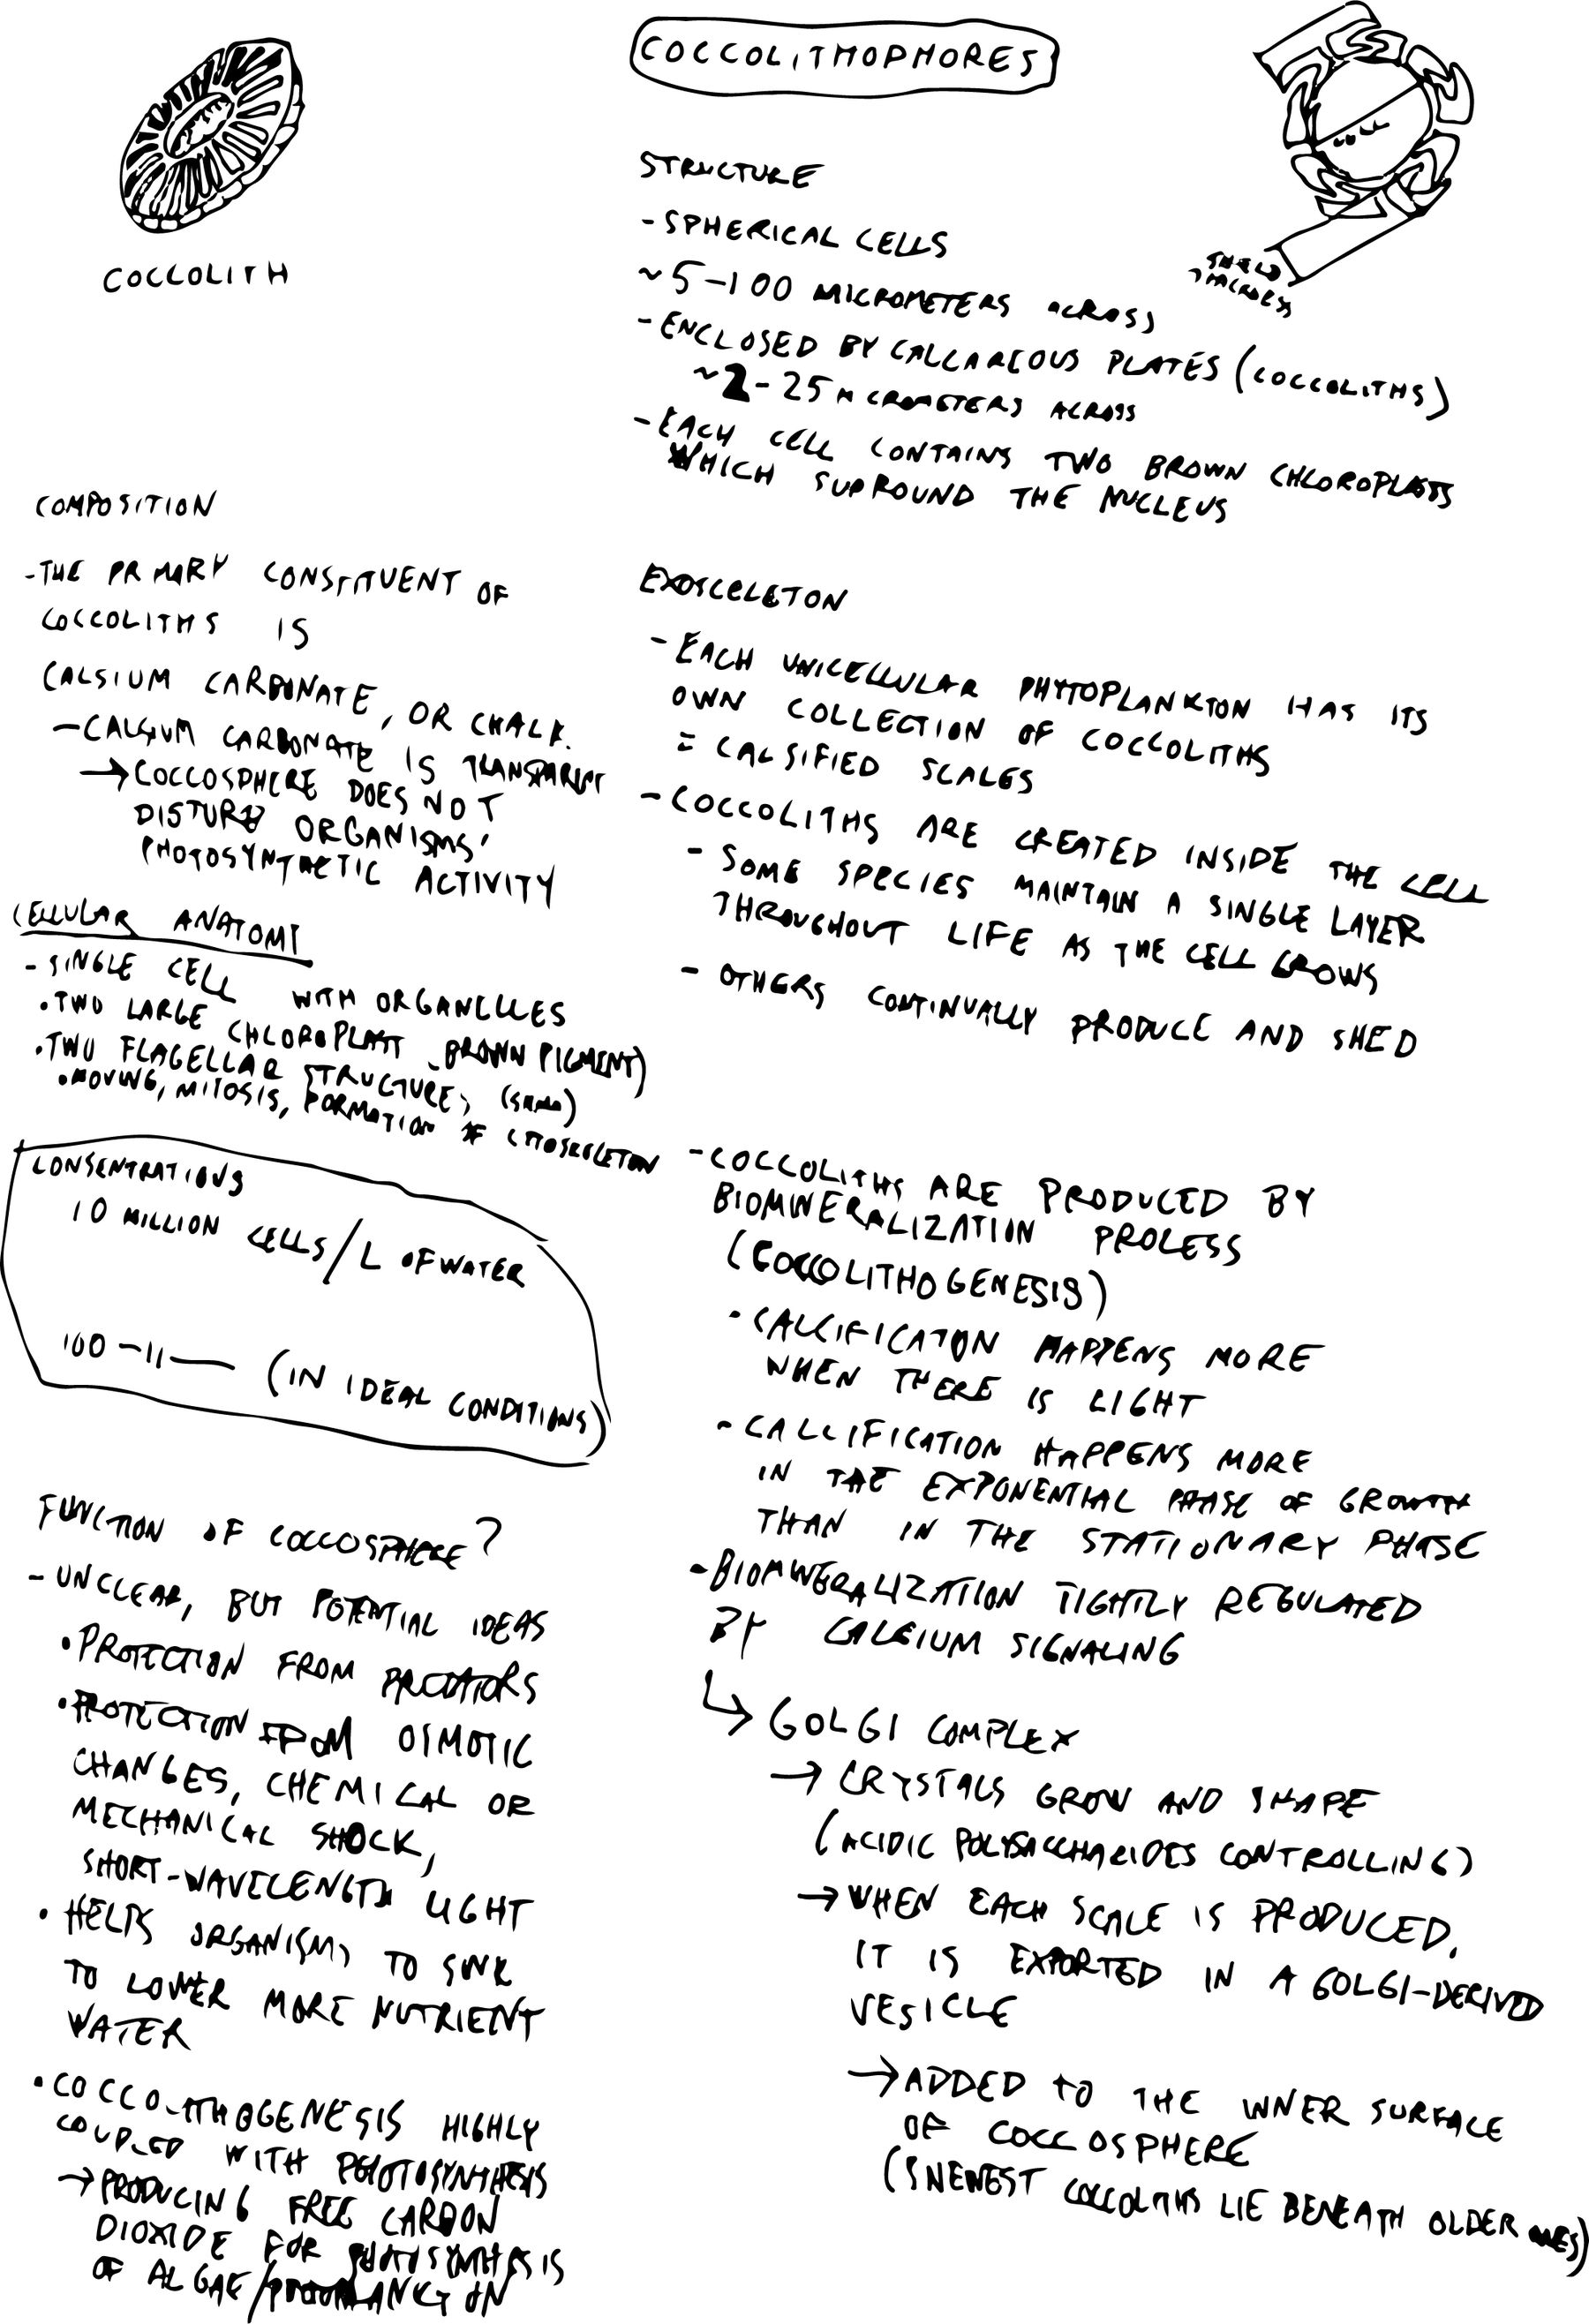 COCCOLITHOPHORES
COCCOLITH
CELL
STRUCTURE
- SPHERICAL CELLS
~ 5-100 MICROMETERS ACROSS
- ENCLOSED BY CALCAREOUS PLATES (COCCOLITHS)
~ 2-25 MICROMETERS ACROSS
- EACH CELL CONTAINS TWO BROWN CHLOROPLASTS
WHICH SURROUND THE NUCLEUS
EXOSCELETON
- EACH UNICELLULAR PHYTOPLANKTON HAS ITS
OWN COLLECTION OF COCCOLITHS
= CALSIFIED SCALES
- COCCOLITHS ARE CREATED INSIDE THE CELL
- SOME SPECIES MAINTAIN A SINGLE LAYER
THROUGHOUT LIFE AS THE CELL GROWS
- OTHERS CONTINUALLY PRODUCE AND SHED
- COCCOLITHS ARE PRODUCED BY
BIOMINERALIZATION PROCESS
(COCCOLITHOGENESIS)
• CALCIFICATION HAPPENS MORE
WHEN THERE IS LIGHT
- CALCIFICATION HAPPENS MORE
IN THE EXPONENTIAL PHASE OF GROWTH
THAN IN THE STATIONARY PHASE
• BIOMINERALIZATION TIGHTLY REGULATED
BY CALCIUM SIGNALING
↳ GOLGI COMPLEX
→ CRYSTALS GROW AND SHAPE
(ACIDIC POLYSACCHARIDES CONTROLLING)
→ WHEN EACH SCALE IS PRODUCED,
IT IS EXPORTED IN A GOLGI-DERIVED
VESICLE
→ ADDED TO THE INNER SURFACE
OF COCCOSPHERE
NEWEST COCCOLITHS LIE BENEATH OLDER ONES)
COMPOSITION
- THE PRIMARY CONSTITUENT OF
COCCOLITHS IS
CALSIUM CARBONATE, OR CHALK.
- CALSIUM CARBONATE IS TRANSPARENT
→ COCCOSPHERE DOES NOT
DISTURB ORGANISMS'
PHOTOSYNTHETIC ACTIVITY
CELLULAR ANATOMY
- SINGLE CELL WITH ORGANELLES
• TWO LARGE CHLOROPLAST (BROWN PIGMENT)
• TWO FLAGELLAR STRUCTURES
• MOVING, MITOSIS, FORMATION OF CYTOSKELETON
CONSENTRATIONS
10 MILLION CELLS/L OF WATER
100 -11- (IN IDEAL CONDITIONS)
FUNCTION OF COCCOSPHERE?
- UNCLEAR, BUT POTENTIAL IDEAS
• PROTECTION FROM PREDATORS
• PROTECTION FROM OSMOTIC
CHANGES, CHEMICAL OR
MECHANICAL SHOCK,
SHORT-WAVELENGTH LIGHT
• HELPS ORGANISMS TO SINK
TO LOWER MORE NUTRIENT
WATER
• COCCOLITHOGENESIS HIGHLY
COUPLED WITH PHOTOSYNTHESIS
→ PRODUCING FREE CARBON
DIOXIDE FOR PHOTOSYNTHESIS
OF ALGAE/